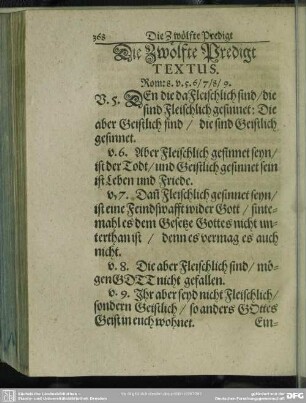 368 Die Zwölfte Predigt
Die Zwölfte Predigt
TEXTUS.
Rom: 8. v. 5. 6/ 7/ 8/ 9.
V. 5. DEn die da Fleischlich sind/ die
sind Fleischlich gesinnet: Die
aber Geistlich sind/ die sind Geistlich
gesinnet.
v. 6. Aber Fleischlich gesinnet seyn/
ist der Todt/ und Geistlich gesinnet sein
ist Leben und Friede.
v. 7. Dañ Fleischlich gesinnet seyn/
ist eine Feindschafft wider Gott/ sinte-
mahl es dem Gesetze Gottes nicht un-
terthan ist/ denn es vermag es auch
nicht.
v. 8. Die aber Fleischlich sind/ mö-
gen GOTT nicht gefallen.
v. 9. Ihr aber seyd nicht Fleischlich/
sondern Geistlich/ so anders GOttes
Geist in euch wohnet.
Ein-